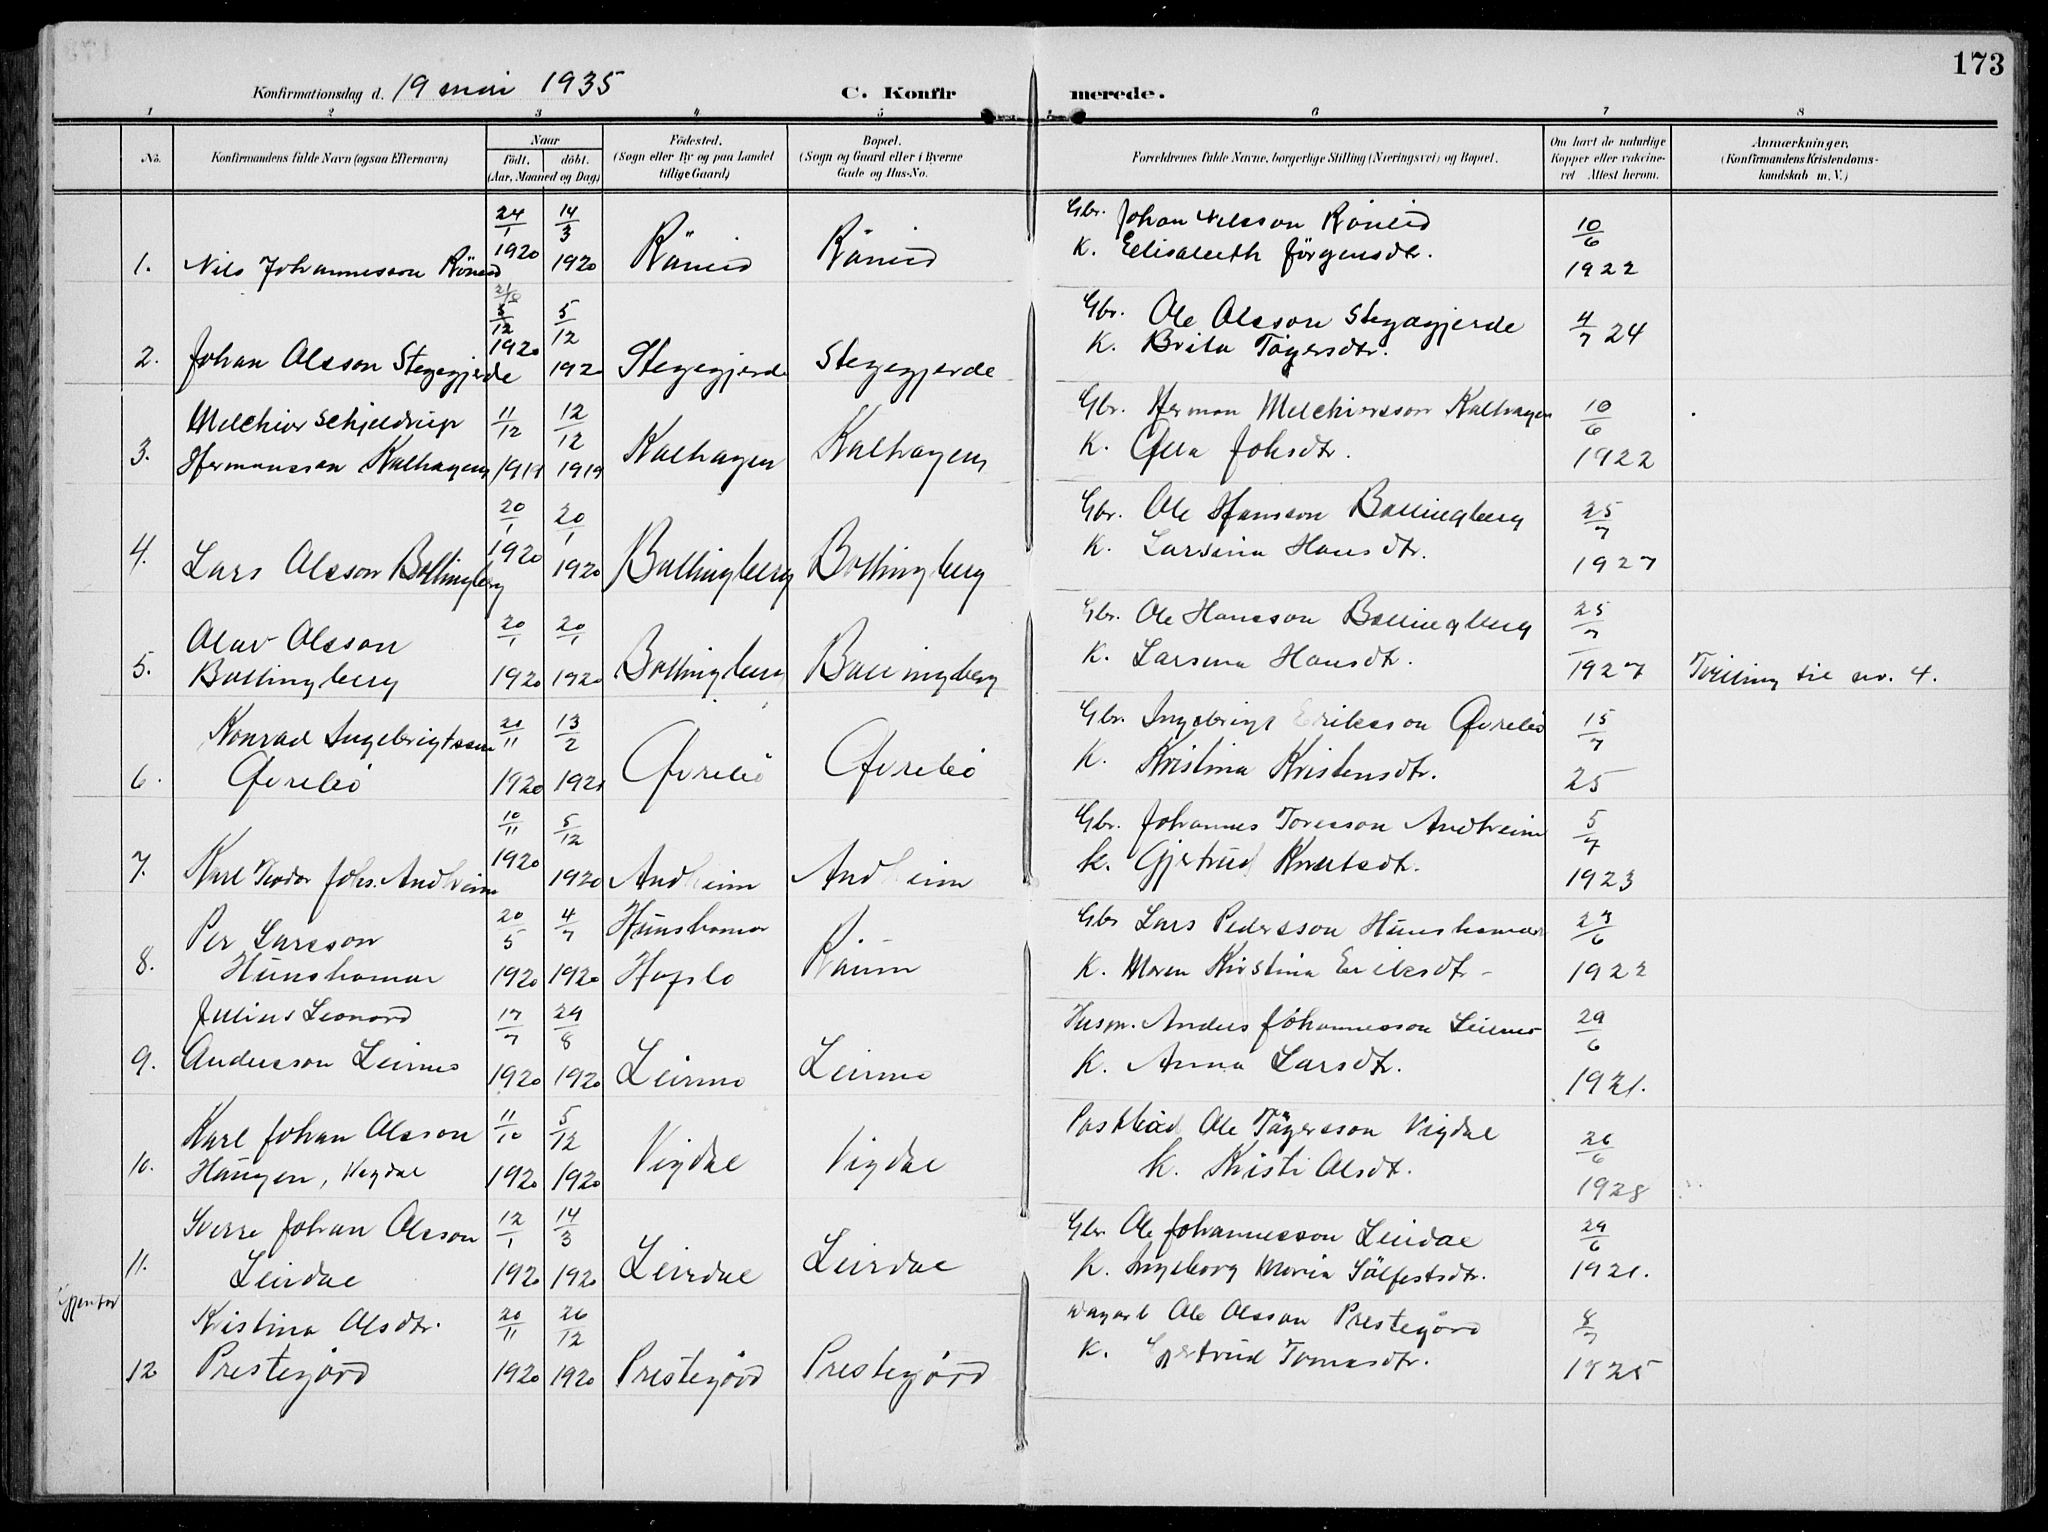 173
Konfirmationsdag d. 19 mai 1935
C. Konfirmerede.
1 2 3 4 5 6 7 8
No. Konfirmandens fulde Navn (ogsaa Efternavn)
Naar
födt. döbt.
(Aar, Maaned og Dag)
Födested.
(Sogn eller By og paa Landet
tillige Gaard)
Bopæl.
(Sogn og Gaard eller i Byerne
Gade og Hus-No.
Forældrenes fulde Navne, borgerlige Stilling (Næringsvei) og Bopæl.
Om havt de naturlige
Kopper eller vakcine-
ret Attest herom.
Anmærkninger.
(Konfirmandens Kristendoms-
kundskab m. V.)
1. Nils Johannesson Röneid 24/1 1920 14/3 1920 Röneid Röneid
Gbr. Johan Nilsson Röneid 10/6
K. Elisabeth Jörgensdtr. 1922
2. Johan Olsson Stegagjerde 5/12 1920 5/12 1920 Stegagjerde Stegagjerde
Gbr. Ole Olsson Stegagjerde 4/7 24
K. Brita Tögersdtr.
Melchior Schjeldrup 11/12 12/12
3. Hermansson Kalhagen 1919 1919 Kalhagen Kalhagen
Gbr. Herman Melchiorsson Kalhagen 10/6
K. Johsdtr. 1922
4. Lars Olsson Bollingberg 20/1 1920 20/1 1920 Bollingberg Bollingberg
Gbr. Ole Hansson Bollingberg 25/7
K. Larsina Hansdtr. 1927
Olav Olsson 20/1 20/1
5. Bollingberg 1920 1920 Bollingberg Bollingberg
Gbr. Ole Hansson Bollingberg 25/7
K. Larsina Hansdtr. 1927 Tvilling til nr. 4.
Konrad Ingebrigtsson 20/11 13/2
6. Øvrebö 1920 1921 Øvrebö Øvrebö
Gbr. Ingebrigt Eriksson Øvrebö 15/7
K. Kristina Kristensdtr. 25
7. Karl Teodor Johs. Andheim 10/11 1920 5/12 1920 Andheim Andheim
Gbr. Johannes Toresson Andheim 5/7
K. Gjertrud Knutsdt. 1923
Per Larsson 20/5 4/7 Hunshamar
8. Hunshamar 1920 1920 Hafslo
Gbr Lars Pedersson Hunshamar
K. Maren Kristina Eriksdtr 1922
Julius Leonard 17/7 29/8
9. Andersson Leirmo 1920 1920 Leirmo Leirmo
Husm. Anders Johannesson Leirmo 29/6
K. Anna Larsdtr. 1921.
Karl Johan Olsson 11/10 5/12
10. Haugen, Vigdal 1920 1920 Vigdal Vigdal
Ole Tögersson Vigdal 26/6
K. Kristi Olsdt. 1928
Sverre Johan Olsson 12/1 14/3
11. Leirdal 1920 1920 Leirdal Leirdal
Gbr. Ole Johannesson Leirdal 29/6
K. Ingeborg Maria Sölfestsdtr. 1921.
Gjentor
Kristina Olsdtr. 20/11 26/12
12 Prestegård 1920 1920 Prestegård Prestegård
Dagarb Ole Olsson Prestegård 8/7
K. Gjertrud Tomasdtr. 1925